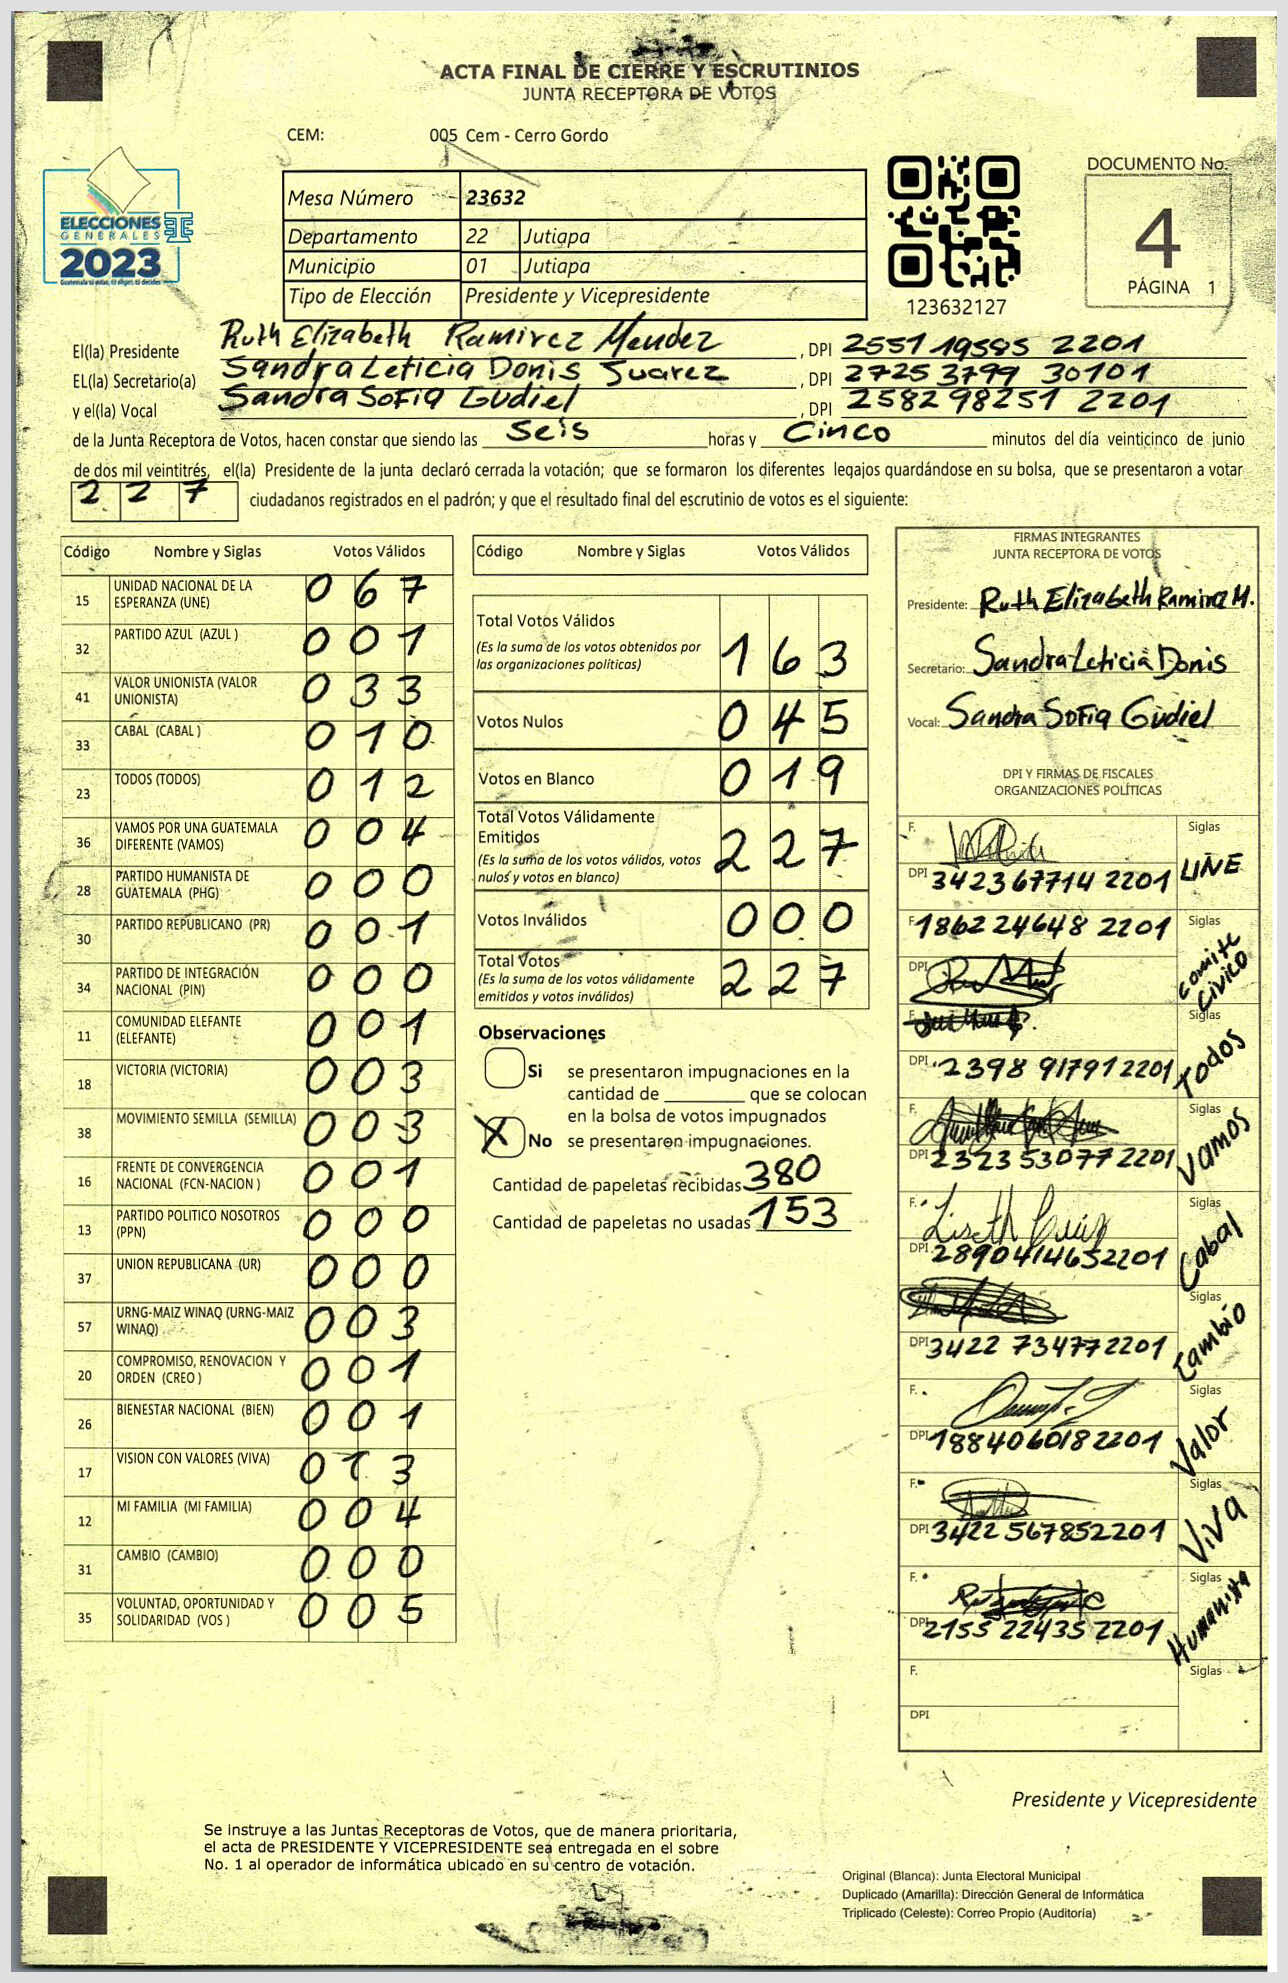 ACTA FINAL DE CIERRE Y ESCRUTINIOS
JUNTA RECEPTORA DE VOTOS
CEM: 005 Cem - Cerro Gordo
ELECCIONES
GENERALES
2023
Guatemala tú estás, tú eliges, tú decides
Mesa Número 23632
Departamento 22 Jutiapa
Municipio 01 Jutiapa
Tipo de Elección Presidente y Vicepresidente
123632127
DOCUMENTO No.
4
PÁGINA 1
El(la) Presidente Ruth Elizabeth Ramirez Mendez , DPI 2551 19585 2201
EL(la) Secretario(a) Sandra Leticia Donis Suarez , DPI 2725 3799 30101
y el(la) Vocal Sandra Sofia Gudiel , DPI 258298251 2201
de la Junta Receptora de Votos, hacen constar que siendo las Seis horas y Cinco minutos del día veinticinco de junio
de dos mil veintitrés, el(la) Presidente de la junta declaró cerrada la votación; que se formaron los diferentes legajos quardándose en su bolsa, que se presentaron a votar
2 2 7 ciudadanos registrados en el padrón; y que el resultado final del escrutinio de votos es el siguiente:
Código Nombre y Siglas Votos Válidos
15 UNIDAD NACIONAL DE LA ESPERANZA (UNE) 0 6 7
32 PARTIDO AZUL (AZUL ) 0 0 1
41 VALOR UNIONISTA (VALOR UNIONISTA) 0 3 3
33 CABAL (CABAL ) 0 1 0
23 TODOS (TODOS) 0 1 2
36 VAMOS POR UNA GUATEMALA DIFERENTE (VAMOS) 0 0 4
28 PARTIDO HUMANISTA DE GUATEMALA (PHG) 0 0 0
30 PARTIDO REPUBLICANO (PR) 0 0 1
34 PARTIDO DE INTEGRACIÓN NACIONAL (PIN) 0 0 0
11 COMUNIDAD ELEFANTE (ELEFANTE) 0 0 1
18 VICTORIA (VICTORIA) 0 0 3
38 MOVIMIENTO SEMILLA (SEMILLA) 0 0 3
16 FRENTE DE CONVERGENCIA NACIONAL (FCN-NACION ) 0 0 1
13 PARTIDO POLITICO NOSOTROS (PPN) 0 0 0
37 UNION REPUBLICANA (UR) 0 0 0
57 URNG-MAIZ WINAQ (URNG-MAIZ WINAQ) 0 0 3
20 COMPROMISO, RENOVACION Y ORDEN (CREO ) 0 0 1
26 BIENESTAR NACIONAL (BIEN) 0 0 1
17 VISION CON VALORES (VIVA) 0 1 3
12 MI FAMILIA (MI FAMILIA) 0 0 4
31 CAMBIO (CAMBIO) 0 0 0
35 VOLUNTAD, OPORTUNIDAD Y SOLIDARIDAD (VOS ) 0 0 5
Código Nombre y Siglas Votos Válidos
Total Votos Válidos
(Es la suma de los votos obtenidos por
las organizaciones políticas) 1 6 3
Votos Nulos 0 4 5
Votos en Blanco 0 1 9
Total Votos Válidamente
Emitidos
(Es la suma de los votos válidos, votos
nulos y votos en blanco) 2 2 7
Votos Inválidos 0 0 0
Total Votos
(Es la suma de los votos válidamente
emitidos y votos inválidos) 2 2 7
Observaciones
Si se presentaron impugnaciones en la
cantidad de ________ que se colocan
en la bolsa de votos impugnados
X No se presentaron impugnaciones.
Cantidad de papeletas recibidas 380
Cantidad de papeletas no usadas 153
FIRMAS INTEGRANTES
JUNTA RECEPTORA DE VOTOS
Presidente: Ruth Elizabeth Ramirez M.
Secretario: Sandra Leticia Donis
Vocal: Sandra Sofia Gudiel
DPI Y FIRMAS DE FISCALES
ORGANIZACIONES POLÍTICAS
F. Siglas
DPI 342367714 2201 UNE
F. 186224648 2201 Siglas
DPI Comite Civico
F. Siglas
DPI 2398 91791 2201 Todos
F.
DPI 2323 53077 2201 Vamos
F. Lizeth Cruz Siglas
DPI 2890414652201 Cabal
Siglas
DPI 3422 734772201 Cambio
F. Siglas
DPI 1884060182201 Valor
F. Siglas
DPI 3422 567852201 Viva
F. Siglas
DPI 2155 22435 2201 Humanista
F. Siglas
DPI
Presidente y Vicepresidente
Se instruye a las Juntas Receptoras de Votos, que de manera prioritaria,
el acta de PRESIDENTE Y VICEPRESIDENTE sea entregada en el sobre
No. 1 al operador de informática ubicado en su centro de votación.
Original (Blanca): Junta Electoral Municipal
Duplicado (Amarilla): Dirección General de Informática
Triplicado (Celeste): Correo Propio (Auditoría)